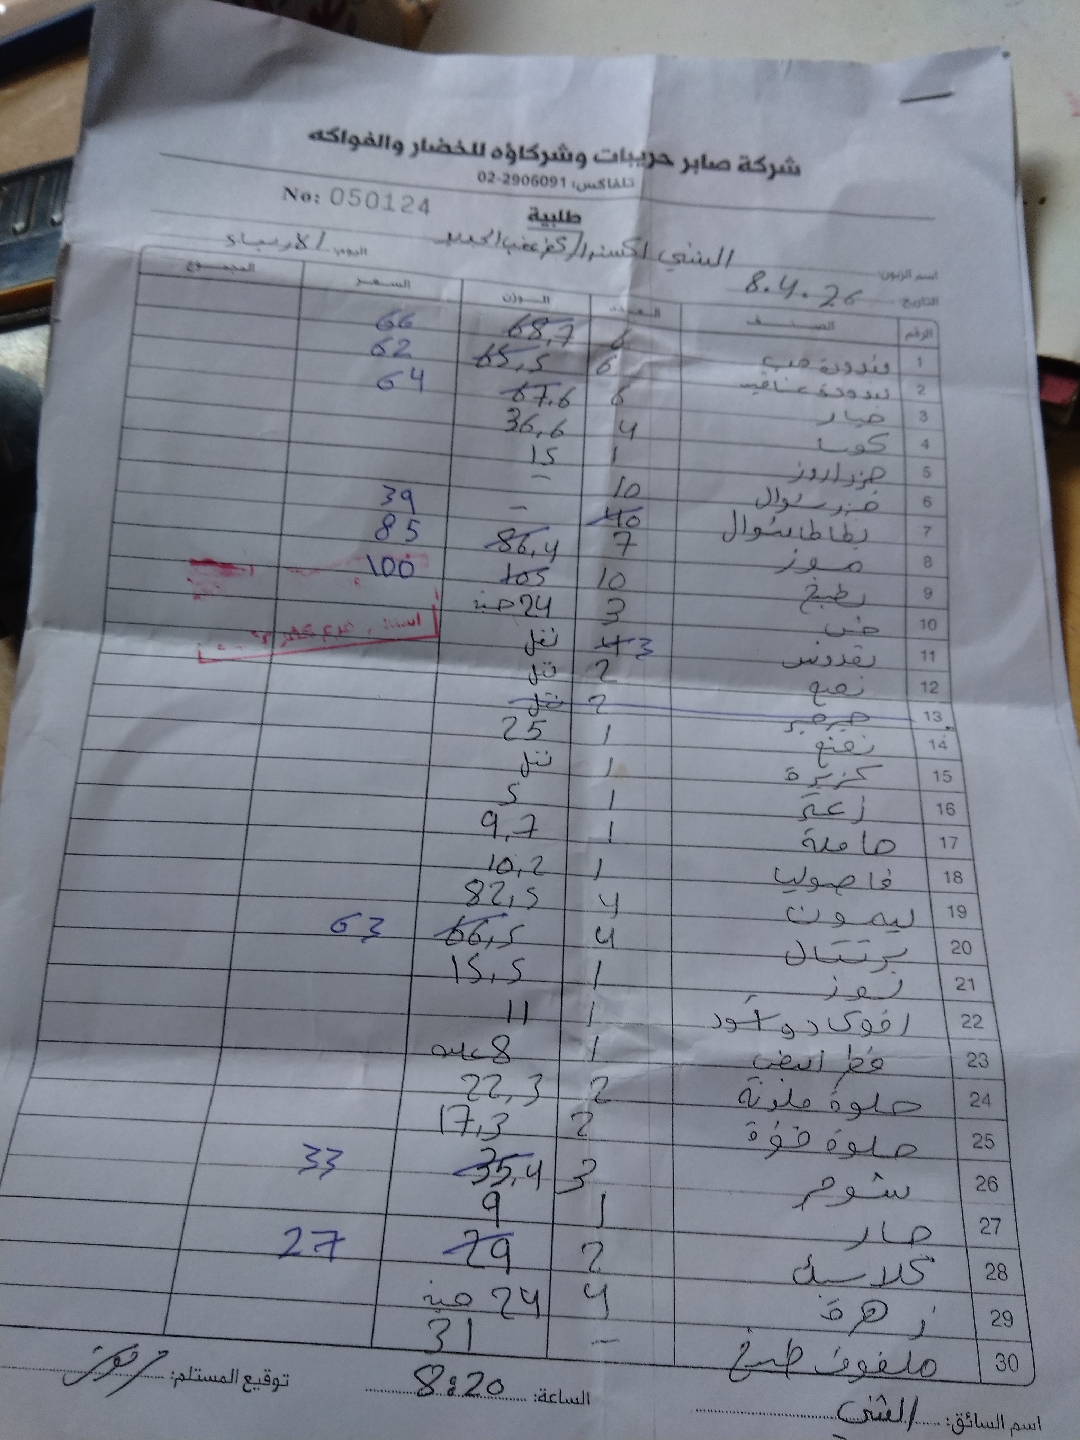 شركة صابر حريبات وشركاؤه للخضار والفواكه
تلفاكس: 02-2906091
No: 050124
طلبية
اسم الزبون: الشني اكسترا/كفر عقب الجديد اليوم: الأربعاء
التاريخ: 8.4.26
الرقم الصنف العدد الوزن السعر المجموع
1 بندورة حب 6 68,7 66
2 بندورة عناقيد 6 65,5 62
3 خيار 6 67,6 64
4 كوسا 4 36,6
5 جزر اروز 1 15
6 جزر شوال 10 –
7 بطاطا شوال 40 – 39
8 موز 7 86,4 85
9 بطيخ 10 105 100
10 خس 3 24 حبة
11 بقدونس 4 3 نتل
12 نعنع 2 نتل
13 جرجير 2 نتل
14 نعنع 1 25
15 كزبرة 1 نتل
16 زعتر 1 5
17 حاملة 1 9,7
18 فاصوليا 1 10,2
19 ليمون 4 82,5
20 برتقال 4 66,5 63
21 لوز 1 15,5
22 افوكادو اسود 1 11
23 فطر ابيض 1 8 علبة
24 حلوة ملونة 2 22,3
25 حلوة 2 17,3
26 شومر 3 35,4 33
27 حار 1 9
28 كلاسيك 2 29 27
29 زهرة 4 24 حبة
30 ملفوف طبخ – 31
اسم السائق: الشني الساعة: 8:20 توقيع المستلم: